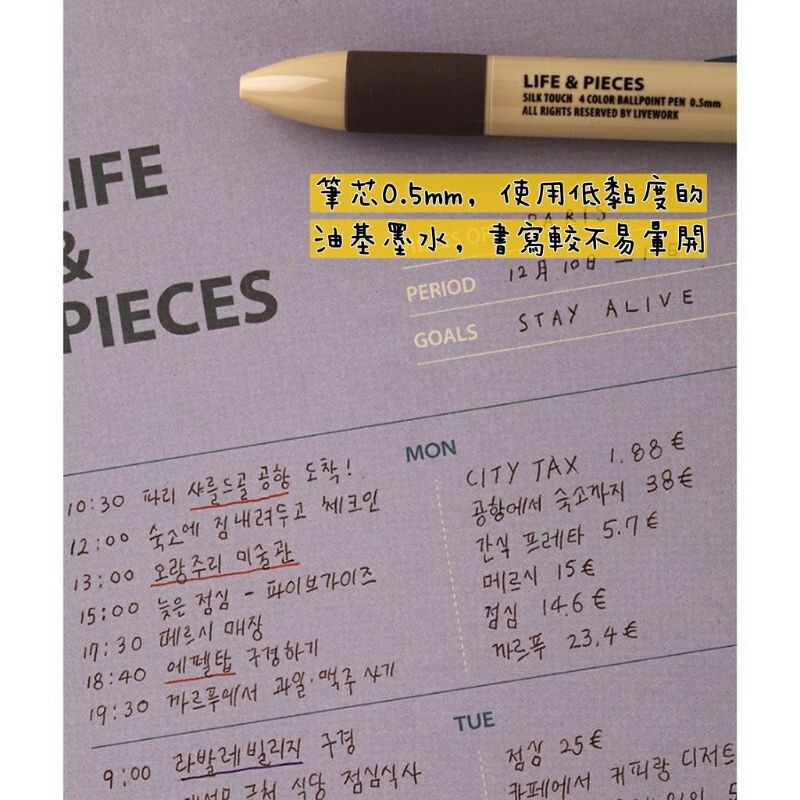 LIFE & PIECES
SILK TOUCH 4 COLOR BALLPOINT PEN 0.5mm
ALL RIGHTS RESERVED BY LIVEWORK
筆芯0.5mm，使用低黏度的
油基墨水，書寫較不易暈開
LIFE
&
PIECES
PARIS
PERIOD 12月 10日
GOALS STAY ALIVE
MON
10:30 파리 샤를드골 공항 도착!
12:00 숙소에 짐 내려두고 체크인
13:00 오랑주리 미술관
15:00 늦은 점심 - 파이브가이즈
17:30 메르시 매장
18:40 에펠탑 구경하기
19:30 까르푸에서 과일·맥주 사기
CITY TAX 1.88€
공항에서 숙소까지 38€
간식 프레타 5.7€
메르시 15€
점심 14.6€
까르푸 23.4€
TUE
9:00 라발레빌리지 구경
식당 점심식사
점심 25€
카페에서 커피랑 디저트